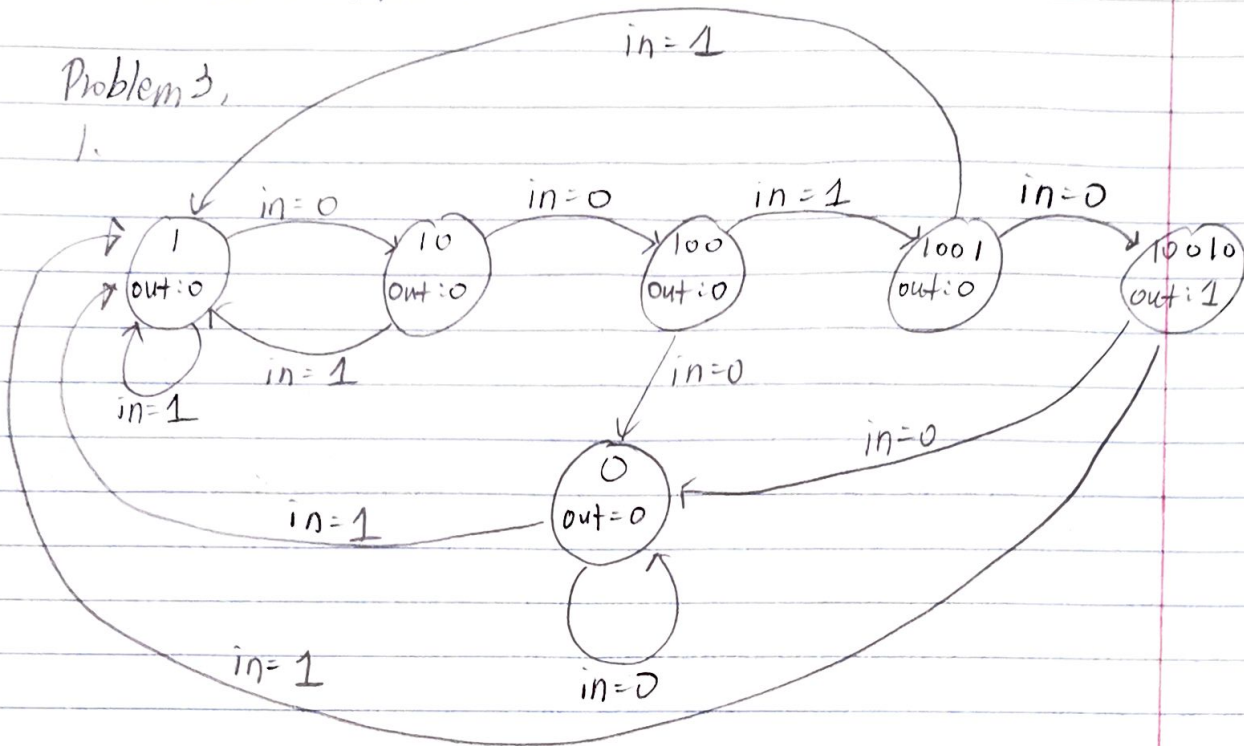 in=1
Problem 3,
1.
in=0
in=0
in=1
in=0
1
out:0
10
out:0
100
out:0
1001
out:0
10010
out:1
in=1
in=1
in=0
in=0
0
out=0
in=1
in=1
in=0